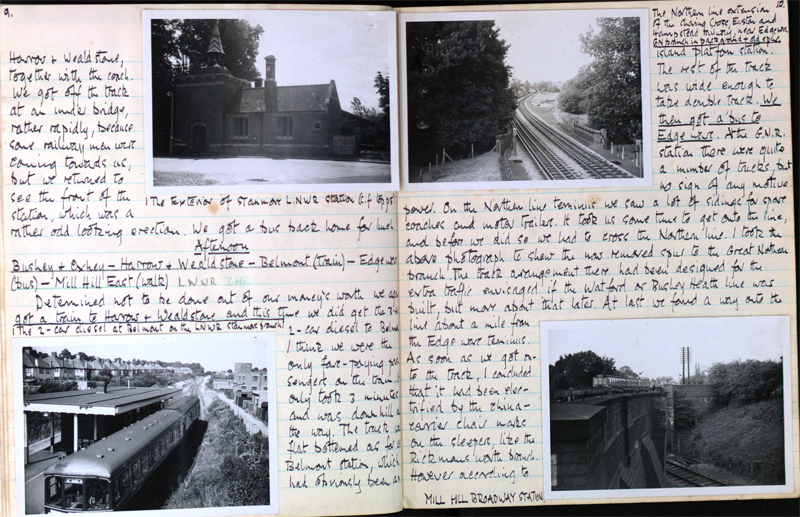 9.
Harrow & Wealdstone,
together with the coach.
We got off the track
at an under bridge,
rather rapidly, because
some railway men were
coming towards us,
but we returned to
see the front of the
station, which was a
1 The Exterior of Stanmore L.N.W.R station
rather odd looking erection. We got a bus back home for lunch
Afternoon
Bushey & Oxhey – Harrow & Wealdstone – Belmont (train) – Edgeware
(bus) – Mill Hill East (walk) L.N.W.R G.N.R
Determined not to be done out of our money's worth we
got a train to Harrow & Wealdstone and this time we did get the
1 The 2-car diesel at Belmont on the LNWR Stanmore branch
2-car diesel to Belmont
I think we were the
only fare-paying pas-
sengers on the train.
only took 3 minutes
and was down hill
the way. The track
flat bottomed as far
Belmont station, which
had obviously been an
10.
The Northern line extension
of the Charing Cross, Euston and
Hampstead Railway, near Edgeware
G.N branch in background & old spur
island platform station.
The rest of the track
was wide enough to
take double track. We
then got a bus to
Edgeware. At the G.N.R.
station there were quite
a number of trucks, but
no sign of any motive
power. On the Northern line terminus we saw a lot of sidings for spare
coaches and motor trailers. It took us some time to get onto the line,
and before we did so we had to cross the Northern line. I took the
above photograph to show the now removed spur to the Great Northern
branch. The track arrangement there had been designed for the
extra traffic envisaged if the Watford or Bushey Heath line was
built, but more about that later. At last we found a way onto the
line about a mile from
the Edgeware terminus.
As soon as we got on-
to the track, I concluded
that it had been elec-
trified by the china-
carrier chair marks
on the sleepers, like the
Rickmansworth branch.
However according to
MILL HILL BROADWAY STATION